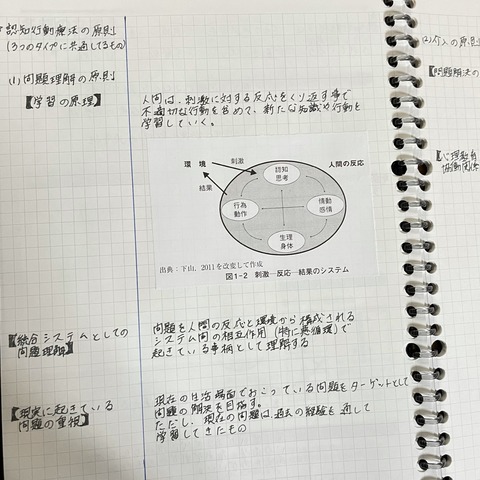 認知行動療法の原則
(3つのタイプに共通してるもの)
(1) 問題理解の原則
【学習の原理】
人間は、刺激に対する反応をくり返す事で
不適切な行動を含めて、新たな知識や行動を
学習していく。
環境
刺激
人間の反応
結果
認知
思考
行為
動作
情動
感情
生理
身体
出典:下山, 2011を改変して作成
図1-2 刺激―反応―結果のシステム
【統合システムとしての
問題理解】
問題を人間の反応と環境から構成される
システム間の相互作用(特に悪循環)で
起きている事柄として理解する
【現実に起きている
問題の重視】
現在の生活場面でおこっている問題をターゲットとして
問題の解決を目指す。
ただし、現在の問題は、過去の経験を通して
学習してきたもの
(2) 介入の原則
【問題解決の
【心理教育
協働関係